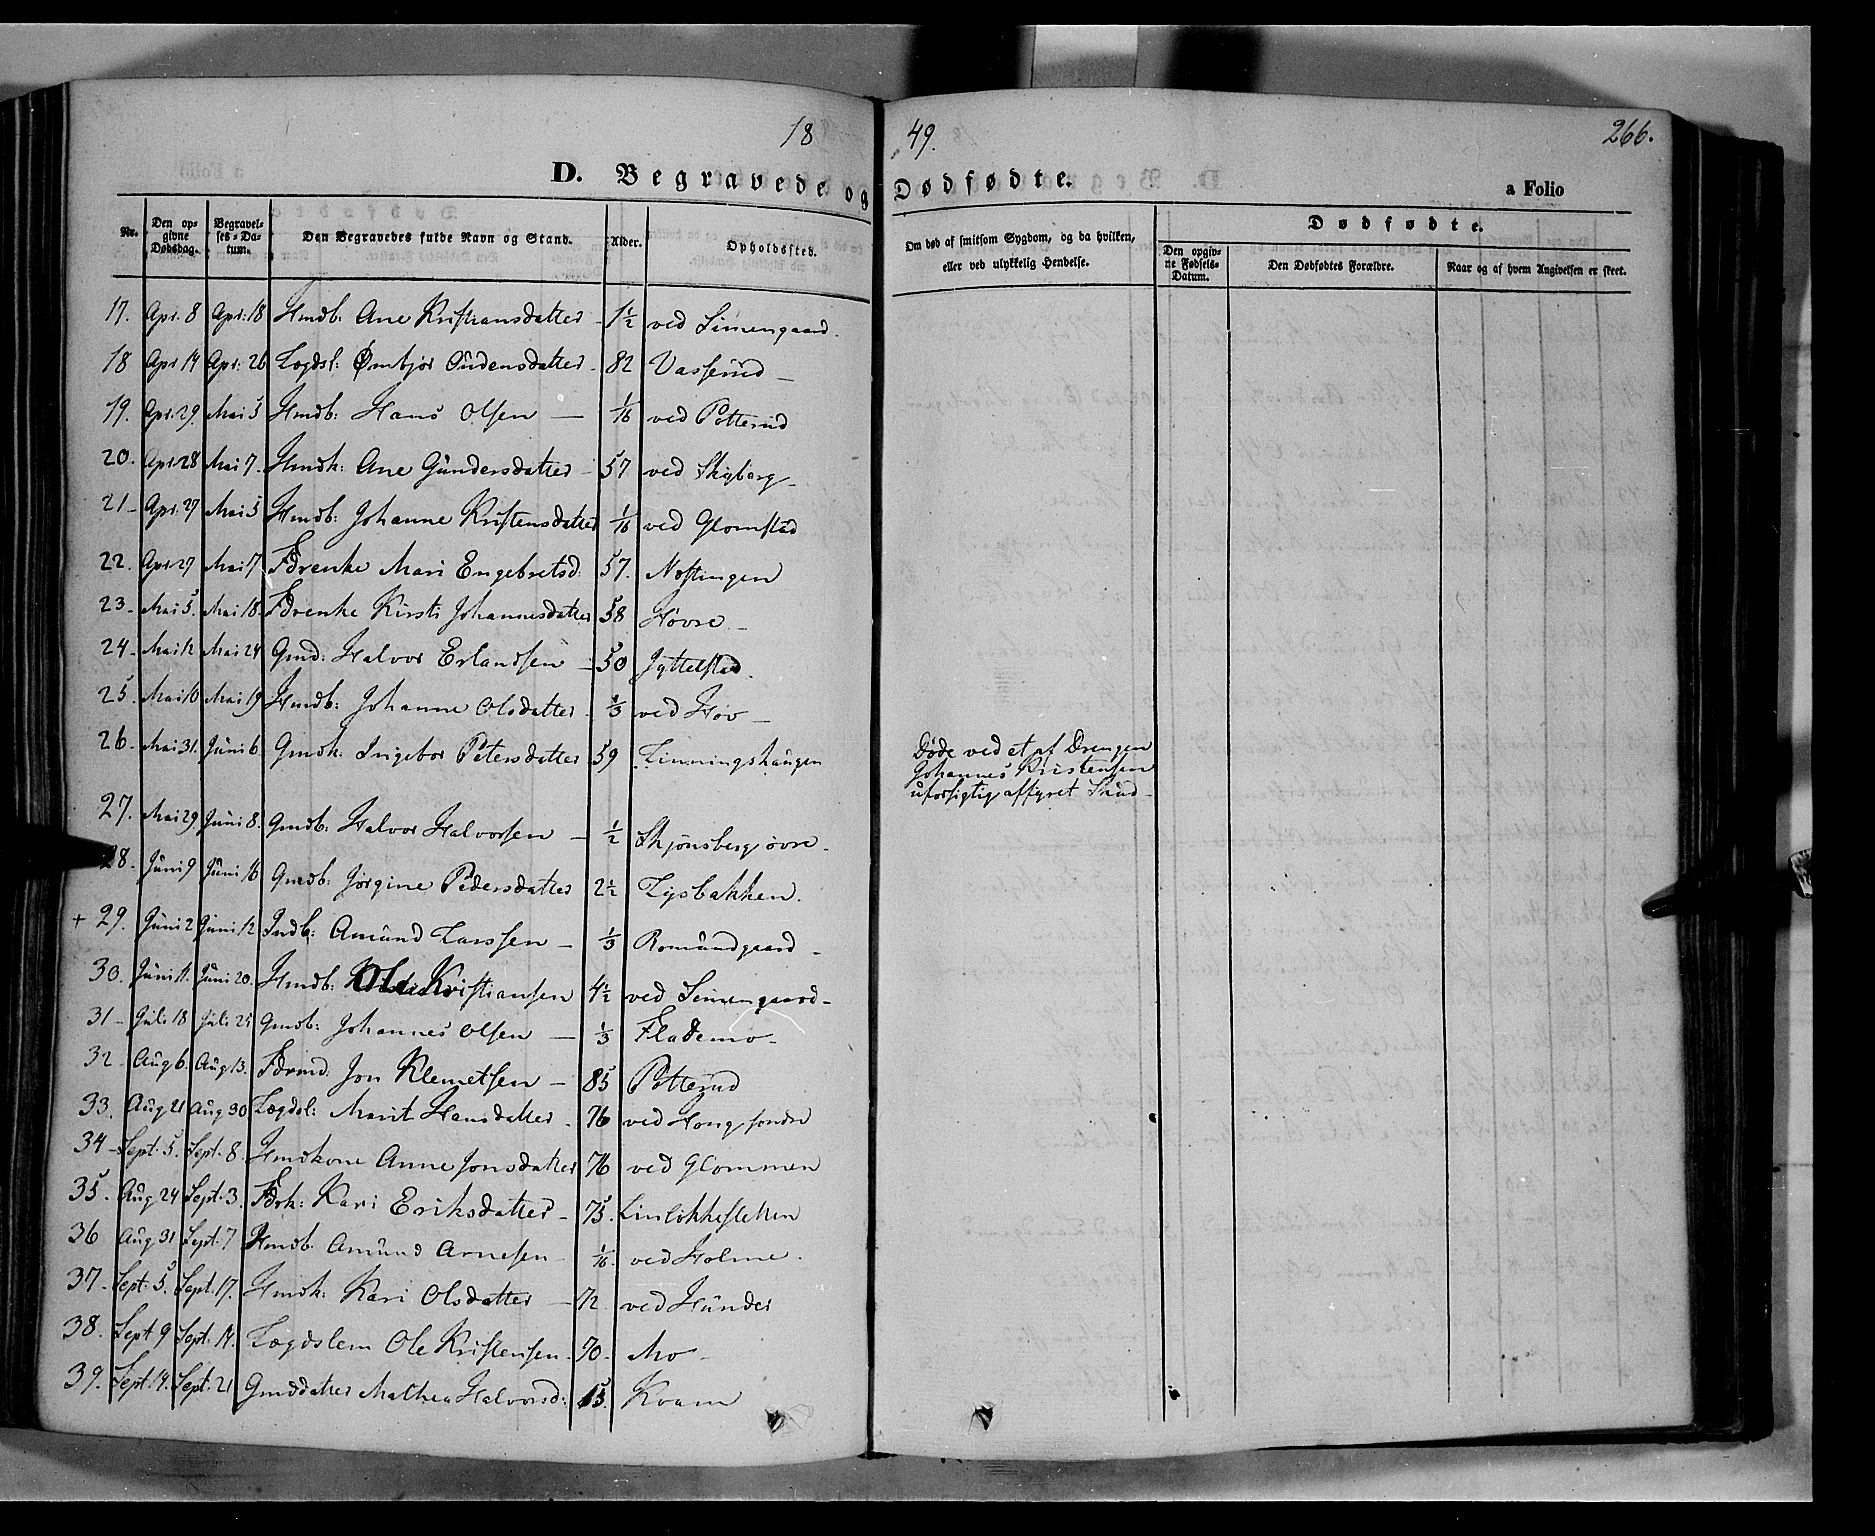 18 49. 266.
D. Begravede og Dødfødte. a Folio
Nr. Den opgivne Dødsdag. Begravelses-Datum. Den Begravedes fulde Navn og Stand. Alder. Opholdssted. Om død af smitsom Sygdom, og da hvilken, eller ved ulykkelig Hendelse. Dødfødte.
Den opgivne Fødsels-Datum. Den Dødfødtes Forældre. Naar og af hvem Angivelsen er skeet.
17. Apr. 8 Apr. 18 Hmdb: Ane Kristiansdatter 1½ ved Simengaard.
18 Apr 14 Apr: 26 Lægdsl: Ømbjør Oudensdatter 82 Vasserud
19. Apr. 29. Mai 5 Hmdb: Hans Olsen 1/16 ved Potterud
20. Apr. 28 Mai 7. Hmdk: Ane Gundersdatter 57 ved Skyberg
21 Apr. 27 Mai 5 Hmdb: Johanne Kristensdatter 1/16 ved Glomstad
22. Apr. 27 Mai 7 Fdrenke Mari Engebretsd: 57. Næstingen
23. Mai 5. Mai 18. Fdrenke Kirsti Johannesdatter 58 Hovre
24 Mai 12 Mai 24 Gmd: Halvor Erlandsen 50 Jyttelstad.
25. Mai 10 Mai 19 Hmdb: Johanne Olsdatter 1/3 ved Hov
26. Mai 31. Juni 6 Gmdk: Ingebor Petersdatter 59 Linningshaugen Døde ved et af Drengen
Johannes Kristensen
uforsigtig affyret Skud
27. Mai 29 Juni 8. Gmdb: Halvor Halvorsen 1/2 Skjønsberg øvre.
28. Juni 9 Juni 16 Gmdb: Jørgine Pedersdatter 2½ Lysbakken.
+ 29. Juni 2 Juni 12 Indb: Amund Larssen 1/3 Romundgaard
30. Juni 11. Juni 20. Hmdb: Ole Kristiansen 4½ ved Simengaard
31 Juli 18 Juli 25 Gmdb: Johannes Olsen 1/3 Flademo
32 Aug 6. Aug 13. Fdrmd. Jon Klemetsen 85 Potterud
33. Aug 21 Aug 30 Lægdsl: Marit Hansdatter 76 ved Hong søndre
34 Sept. 5. Sept. 8. Hmdkone Anne Jonsdatter 76 ved Glommen
35. Aug 24 Sept. 3. Fdrk: Kari Eriksdatter 75. Linløkkesletten
36 Aug 31 Sept. 7 Hmdb. Amund Arnesen 1/16. ved Holme.
37. Sept. 5. Sept. 17. Hmdk: Kari Olsdatter 72. ved Hunder
38. Sept 9 Sept. 14. Lægdslem Ole Kristensen. 70. Mo
39. Sept. 14. Sept. 21 Gmddatter Mathea Halvorsd: 15. Kvam